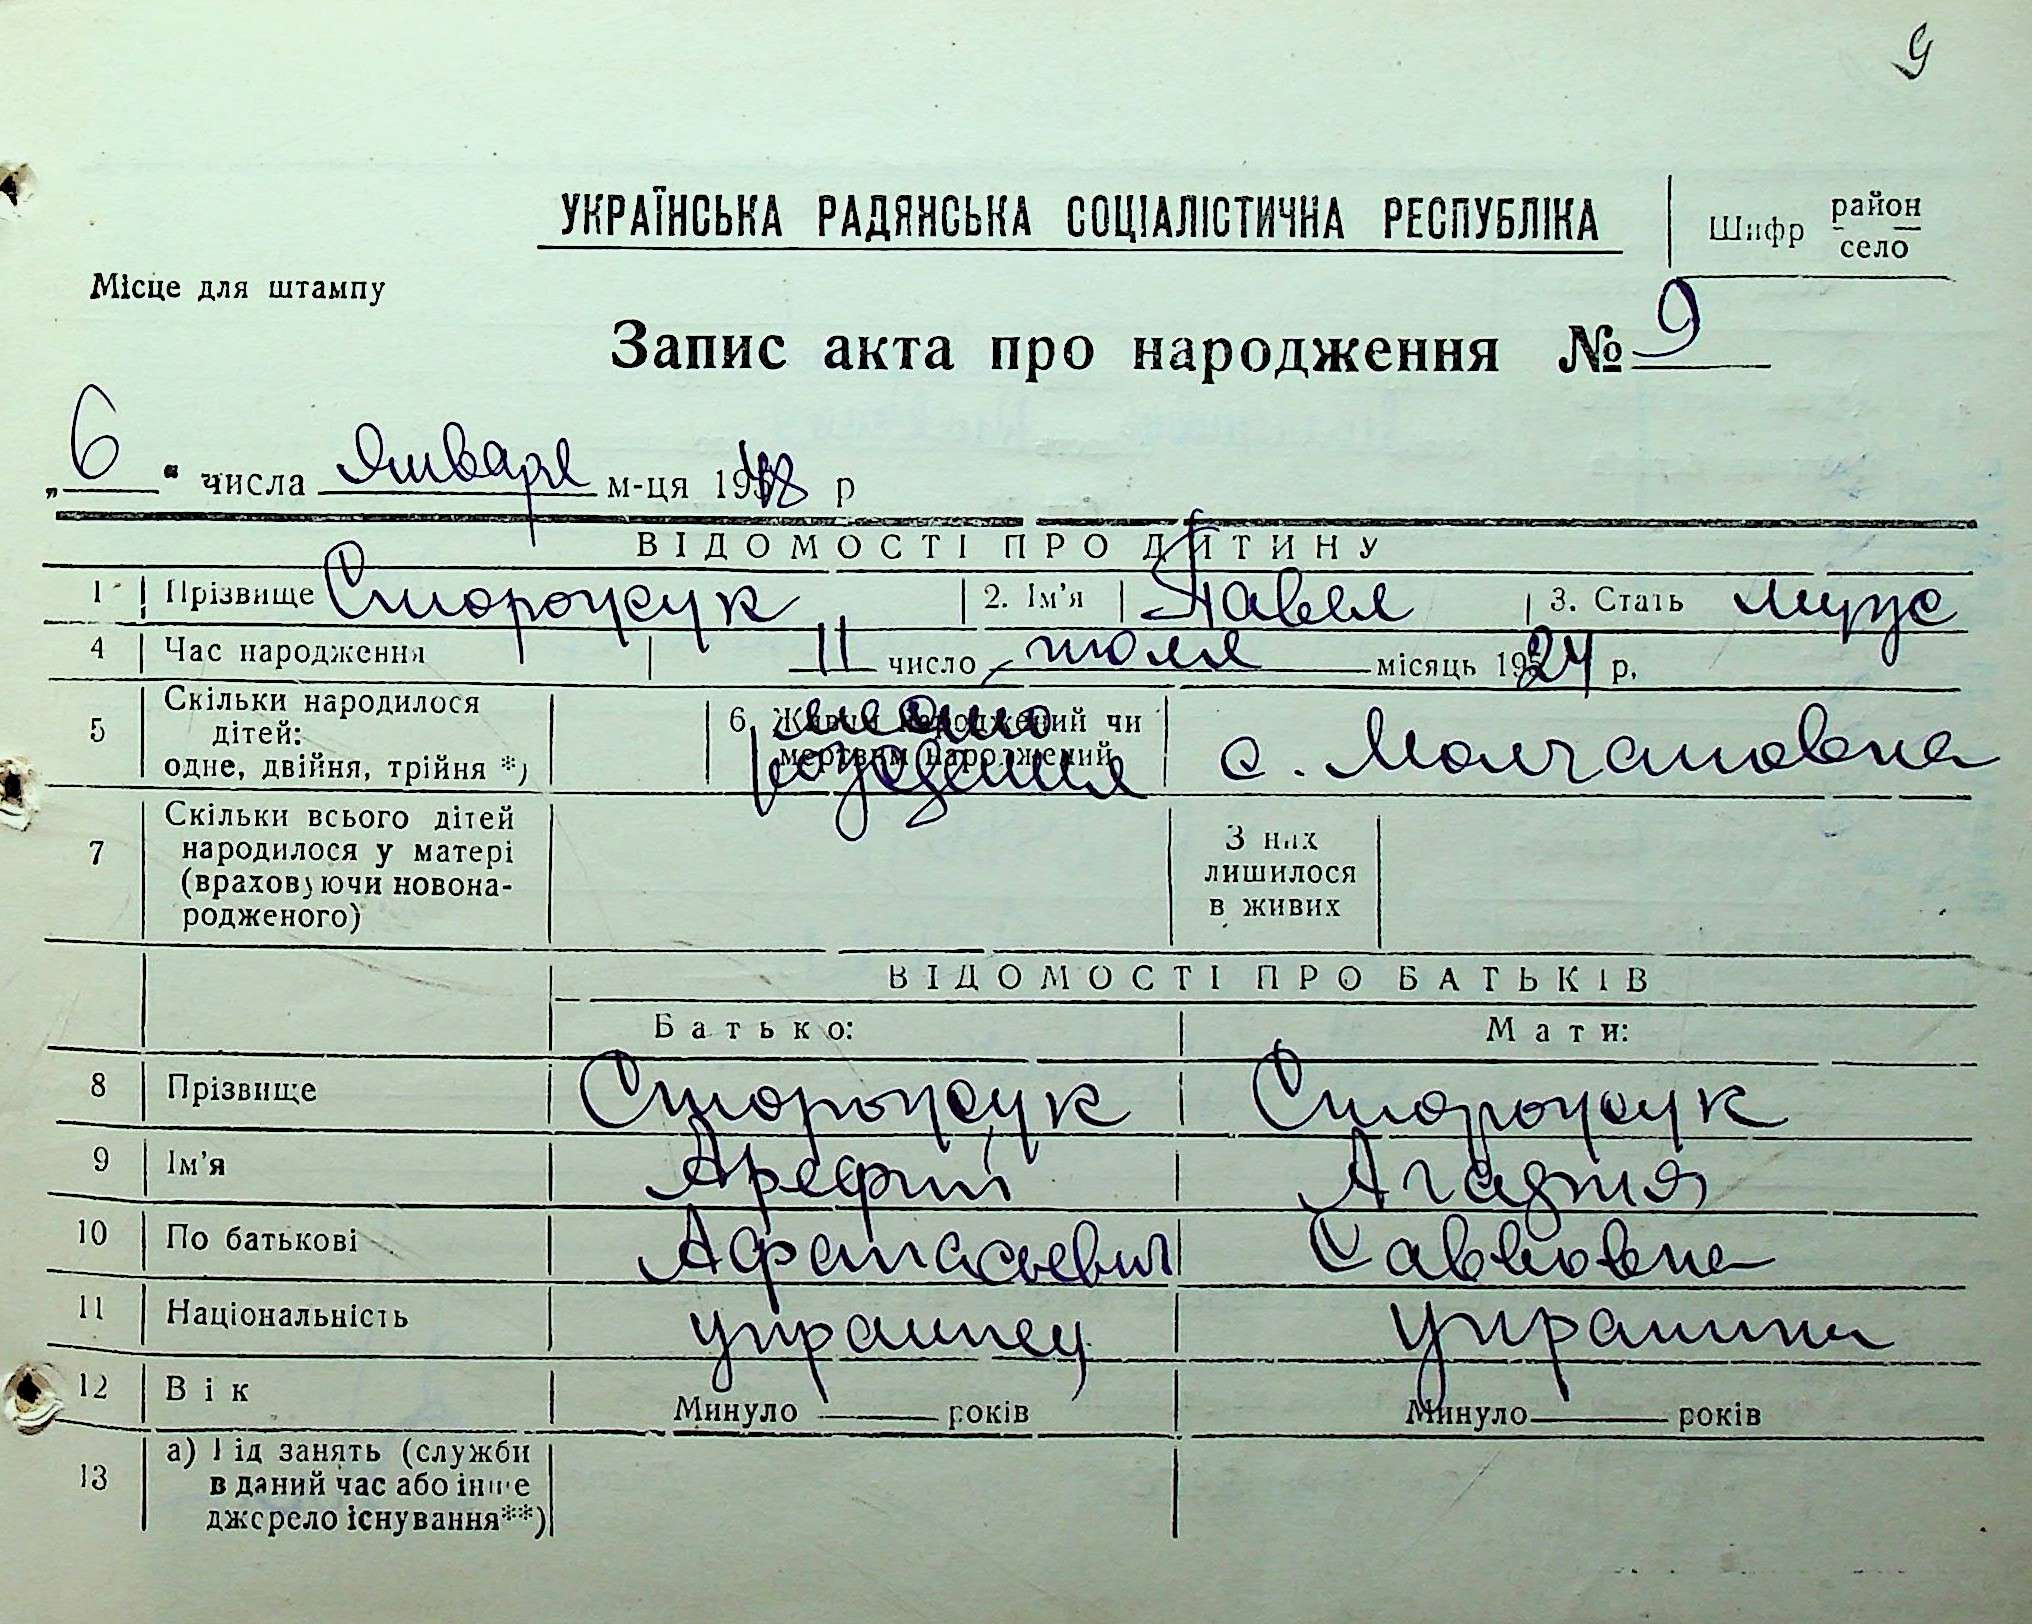 9
УКРАЇНСЬКА РАДЯНСЬКА СОЦІАЛІСТИЧНА РЕСПУБЛІКА
Шифр район село
Місце для штампу
Запис акта про народження № 9
„6“ числа Января м-ця 1948 р
ВІДОМОСТІ ПРО ДИТИНУ
1 Прізвище Сторожук 2. Ім’я Павел 3. Стать муж
4 Час народження 11 число июля місяць 1924 р.
5 Скільки народилося дітей: одне, двійня, трійня *)
6. Живим народжений чи мертвим народжений место рождения с. Молчановка
7 Скільки всього дітей народилося у матері (враховуючи новонародженого)
З них лишилося в живих
ВІДОМОСТІ ПРО БАТЬКІВ
Батько: Мати:
8 Прізвище Сторожук Сторожук
9 Ім’я Арефий Агафия
10 По батькові Афанасьевич Саввовна
11 Національність украинец украинка
12 Вік Минуло років Минуло років
13 а) Рід занять (служби в даний час або інше джерело існування**)